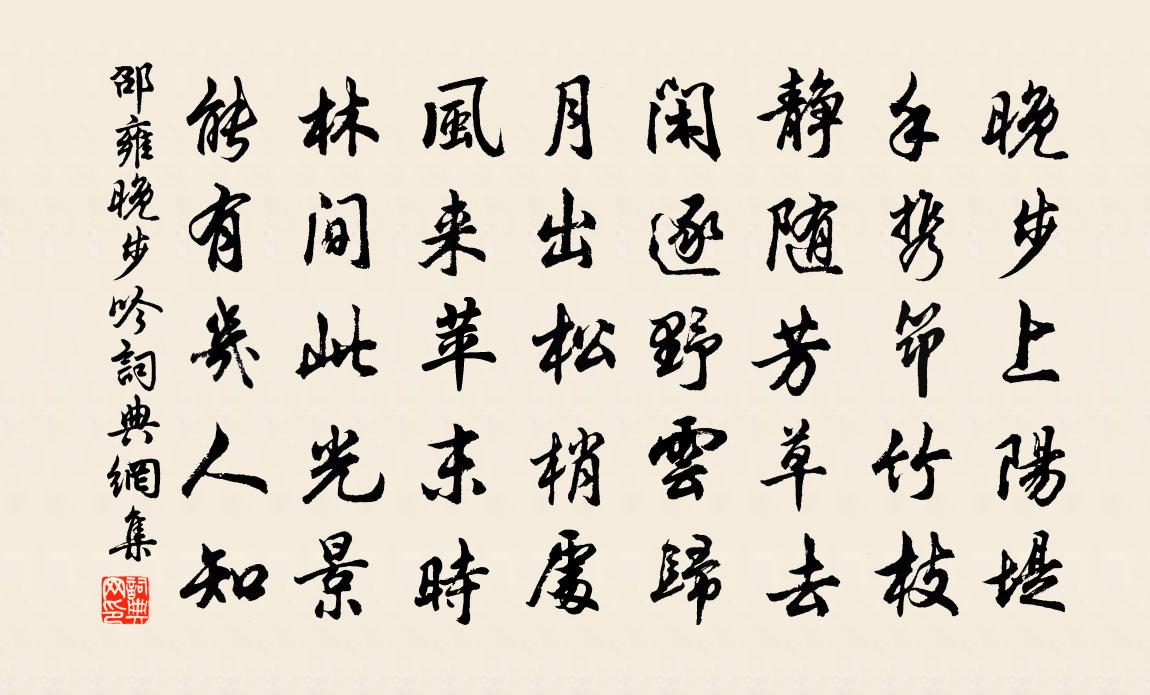 晚步上陽堤
手携筇竹枝
静随芳草去
闲逐野雲歸
月出松梢處
風来苹末時
林间此光景
能有幾人知
邵雍晚步吟詞典網集
詞典网印